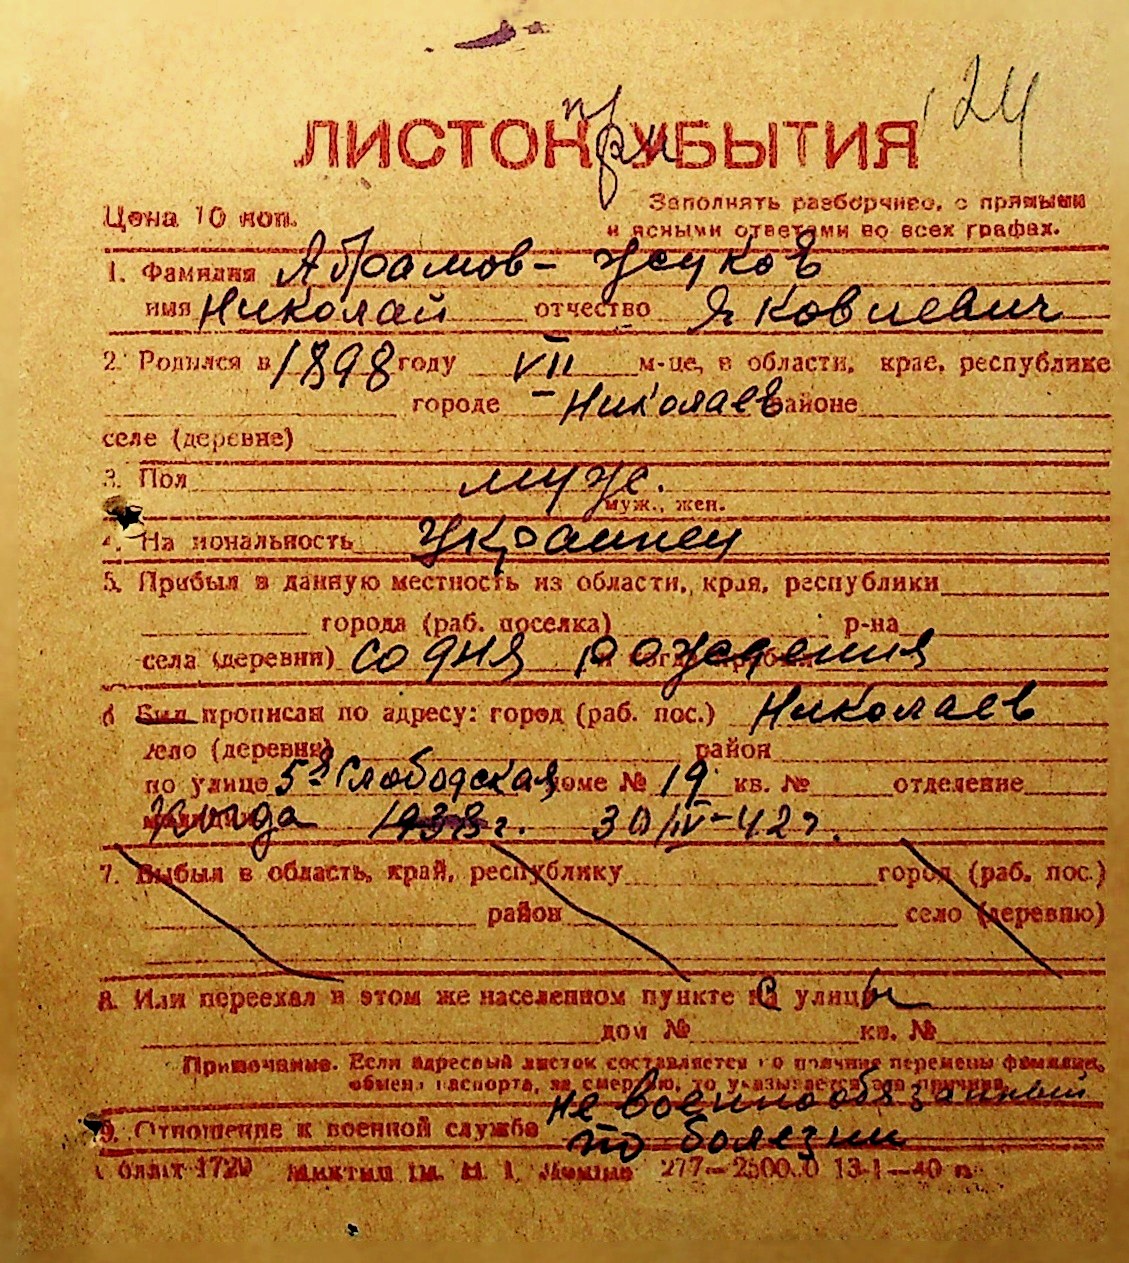 124
ЛИСТОК при УБЫТИЯ
Цена 10 коп.
Заполнять разборчиво, с прямыми
и ясными ответами во всех графах.
1. Фамилия Абрамов - Жуков
имя Николай отчество Яковлевич
2. Родился в 1898 году VII м-це, в области, крае, республике
городе - Николаев районе
селе (деревне)
3. Пол муж.
муж., жен.
4. Национальность Украинец
5. Прибыл в данную местность из области, края, республики
города (раб. поселка) р-на
села (деревни) со дня рождения
6 Был прописан по адресу: город (раб. пос.) Николаев
село (деревня) район
по улице 5я Слободская доме № 19 кв. № отделение
1938 г. 30/IV-42 г.
7. Выбыл в область, край, республику город (раб. пос.)
район село (деревню)
8. Или переехал в этом же населенном пункте с улицы
дом № кв. №
Примечание. Если адресный листок составляется по причине перемены фамилии,
обмена паспорта, за смертью, то указывается эта причина.
не военнообязанный
9. Отношение к военной службе по болезни
277—2500.0 13-1—40 г.